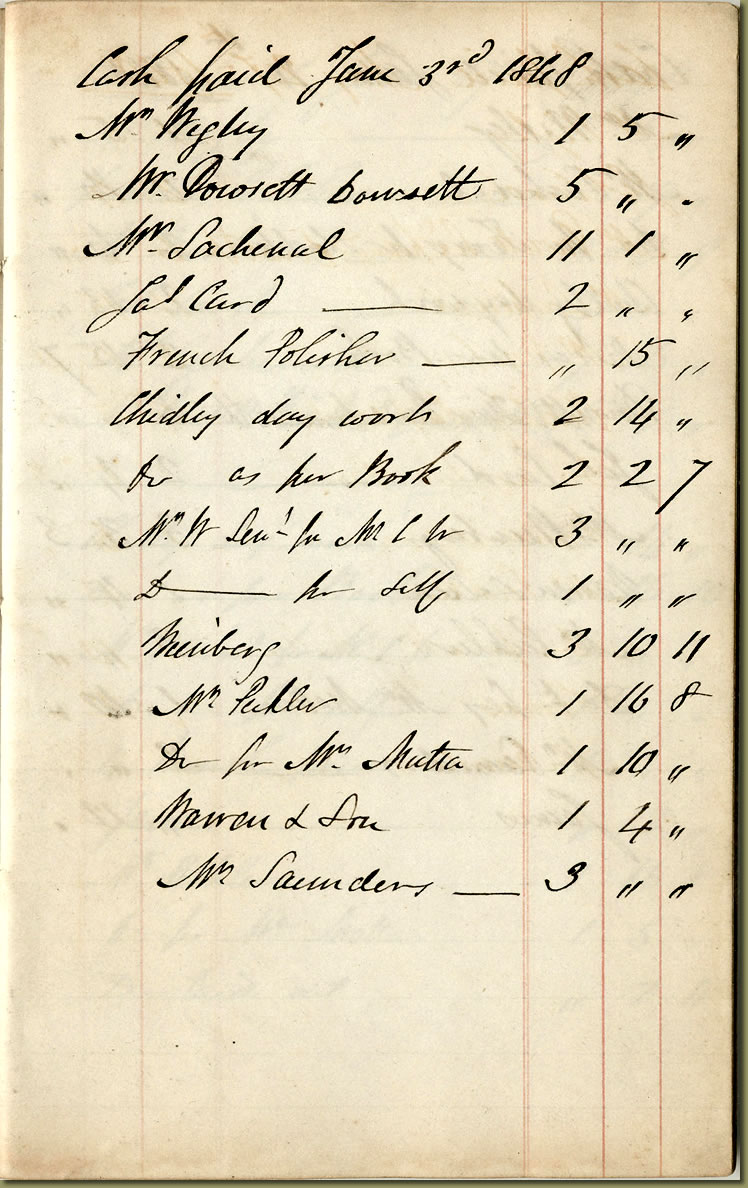 Cash paid Jan 3rd 1868
Mr Wegley 1 5 "
Mr. Dowsett Dowsett 5 " "
Mr. Lachenal 11 1 "
Card 2 " "
French Polisher — " 15 "
Chidley day work 2 14 "
Do as per Book 2 2 7
Mr W Senr for 3 " "
D— for Self 1 " "
3 10 11
Mr 1 16 8
Do for Mr 1 10 "
Warren & Son 1 4 "
Mr Saunders — 3 " "